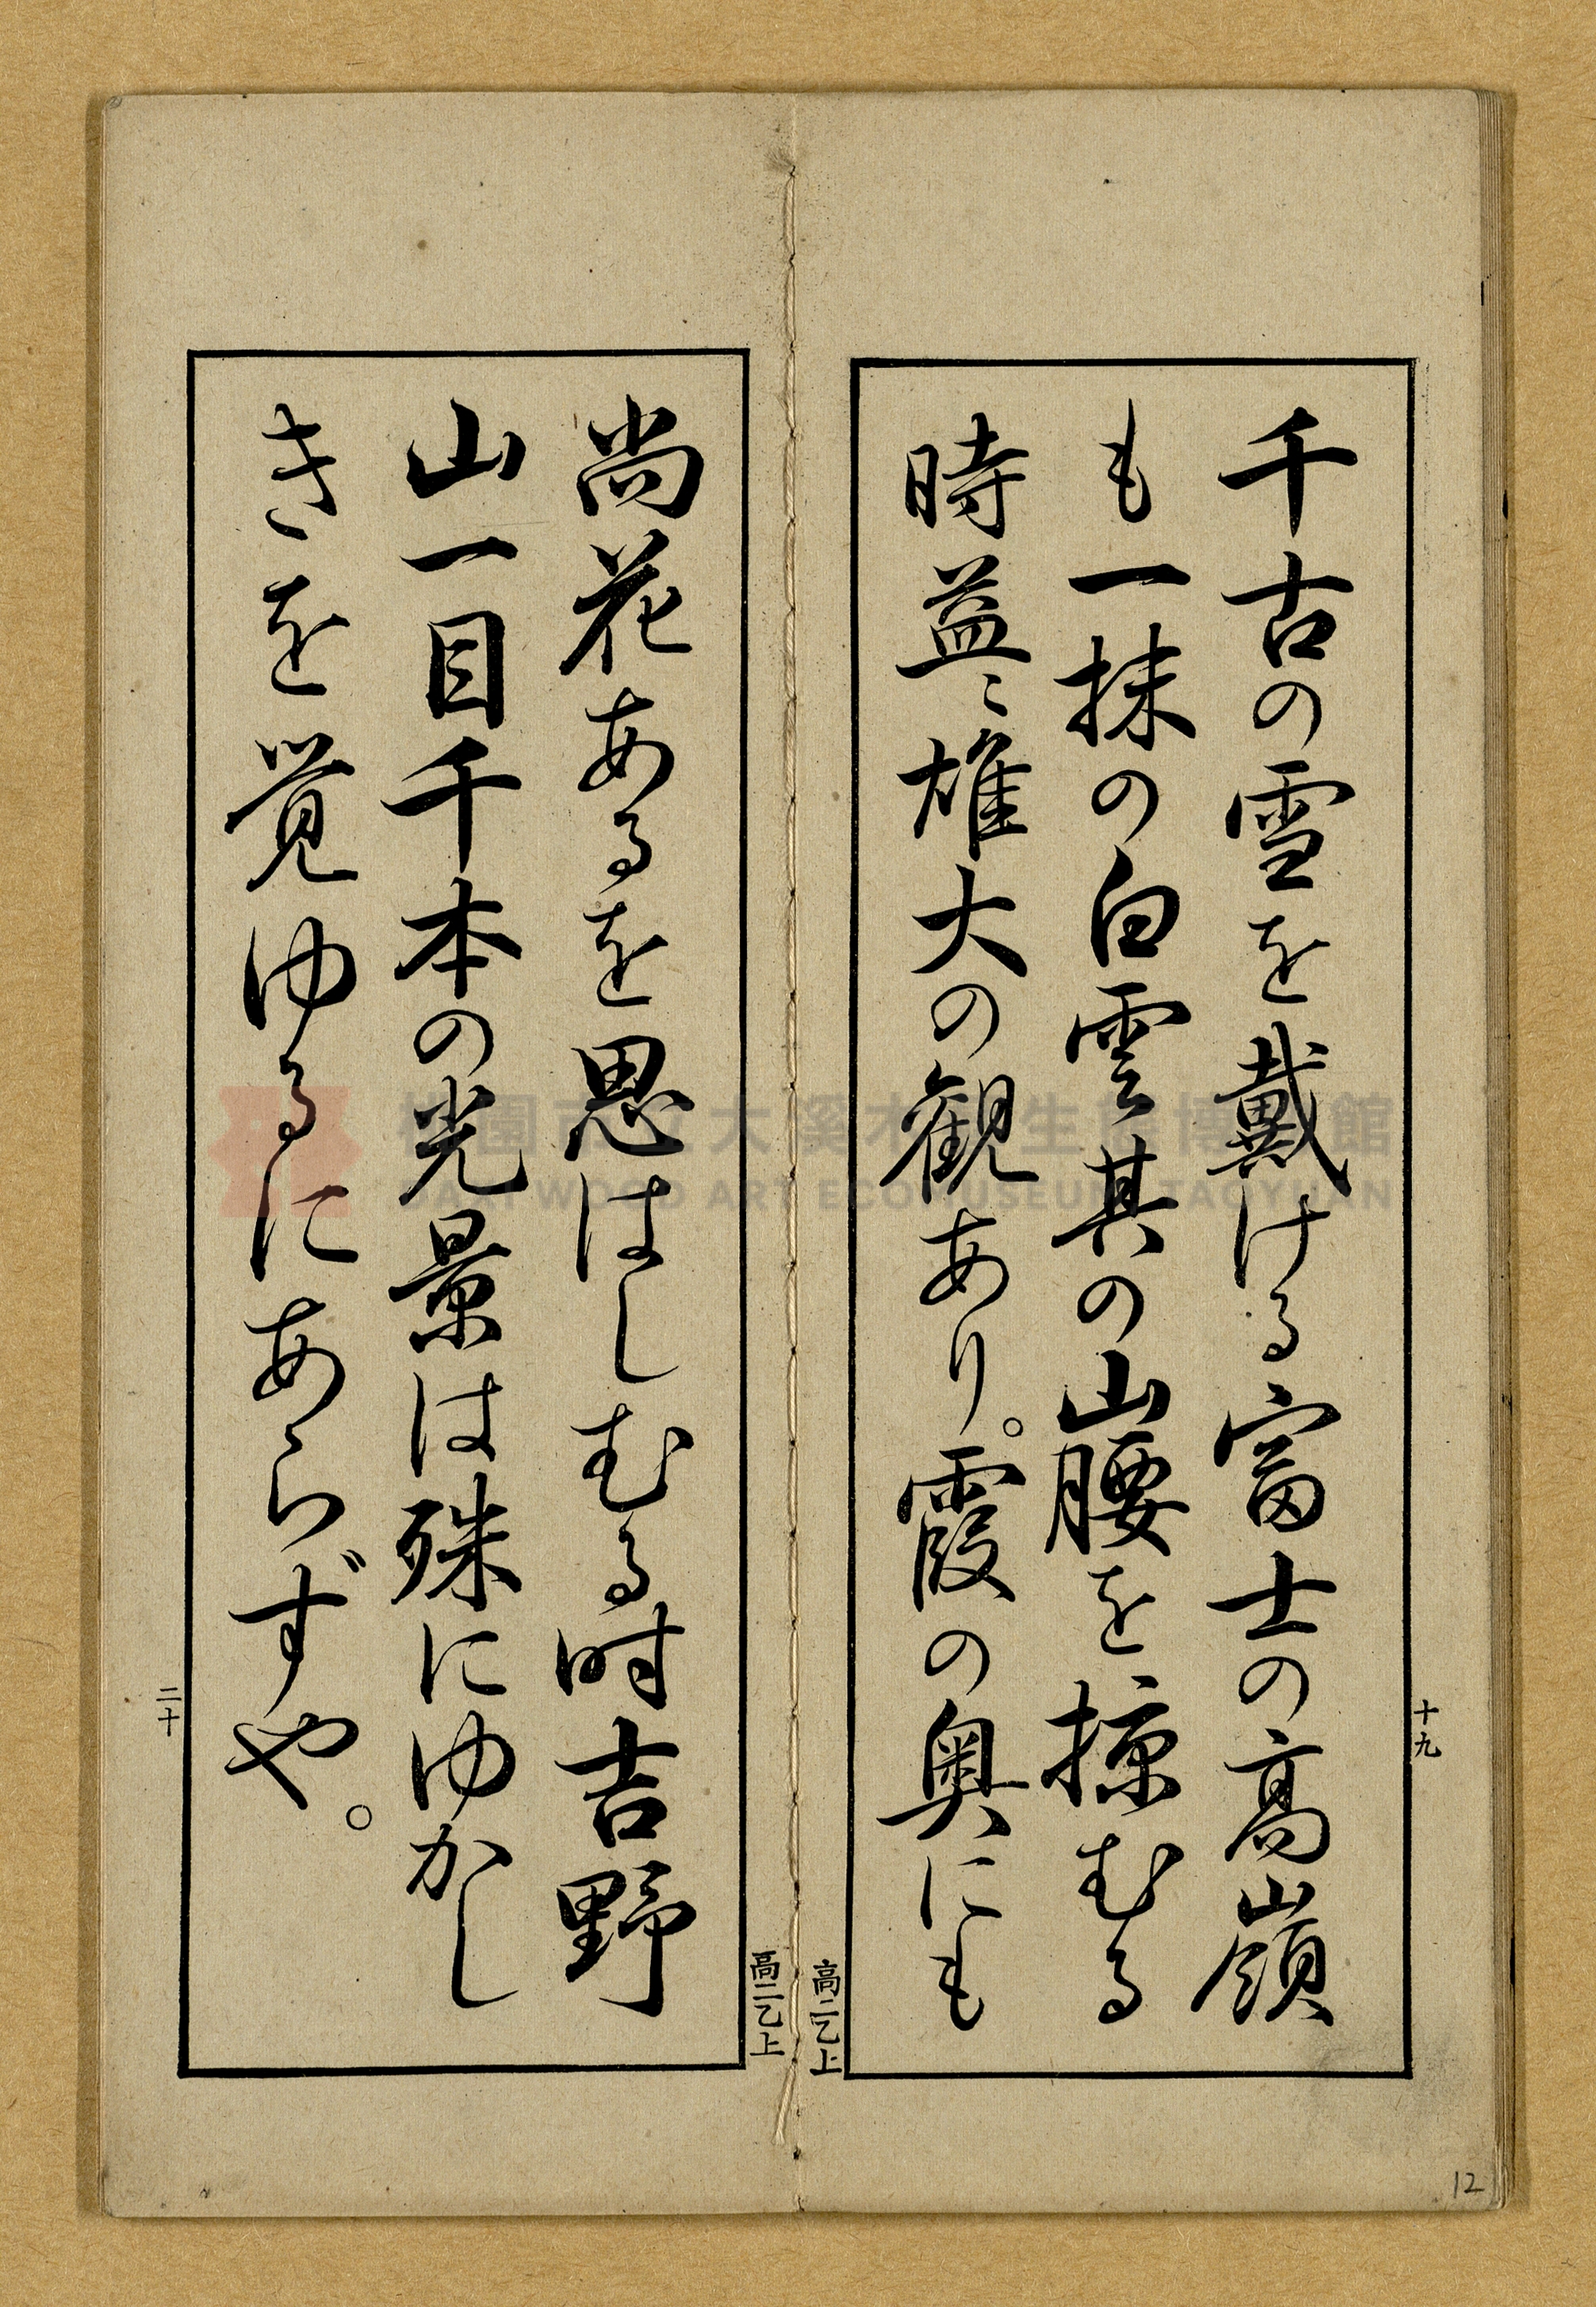 千古の雪を戴ける富士の高嶺
も一抹の白雲其の山腰を掠むる
時益〻雄大の観あり。霞の奥にも
十九
高二乙上
尚花あるを思はしむる時吉野
山一目千本の光景は殊にゆかし
きを覚ゆるにあらずや。
二十
高二乙上
12
桃園市立大溪木藝生態博物館
DAXI WOOD ART ECOMUSEUM, TAOYUAN